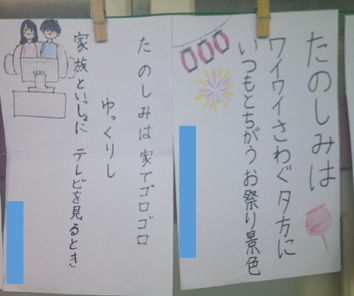 たのしみは
ワイワイさわぐ夕方に
いつもとちがうお祭り景色
たのしみは家でゴロゴロ
ゆっくりし
家族といっしょに テレビを見るとき